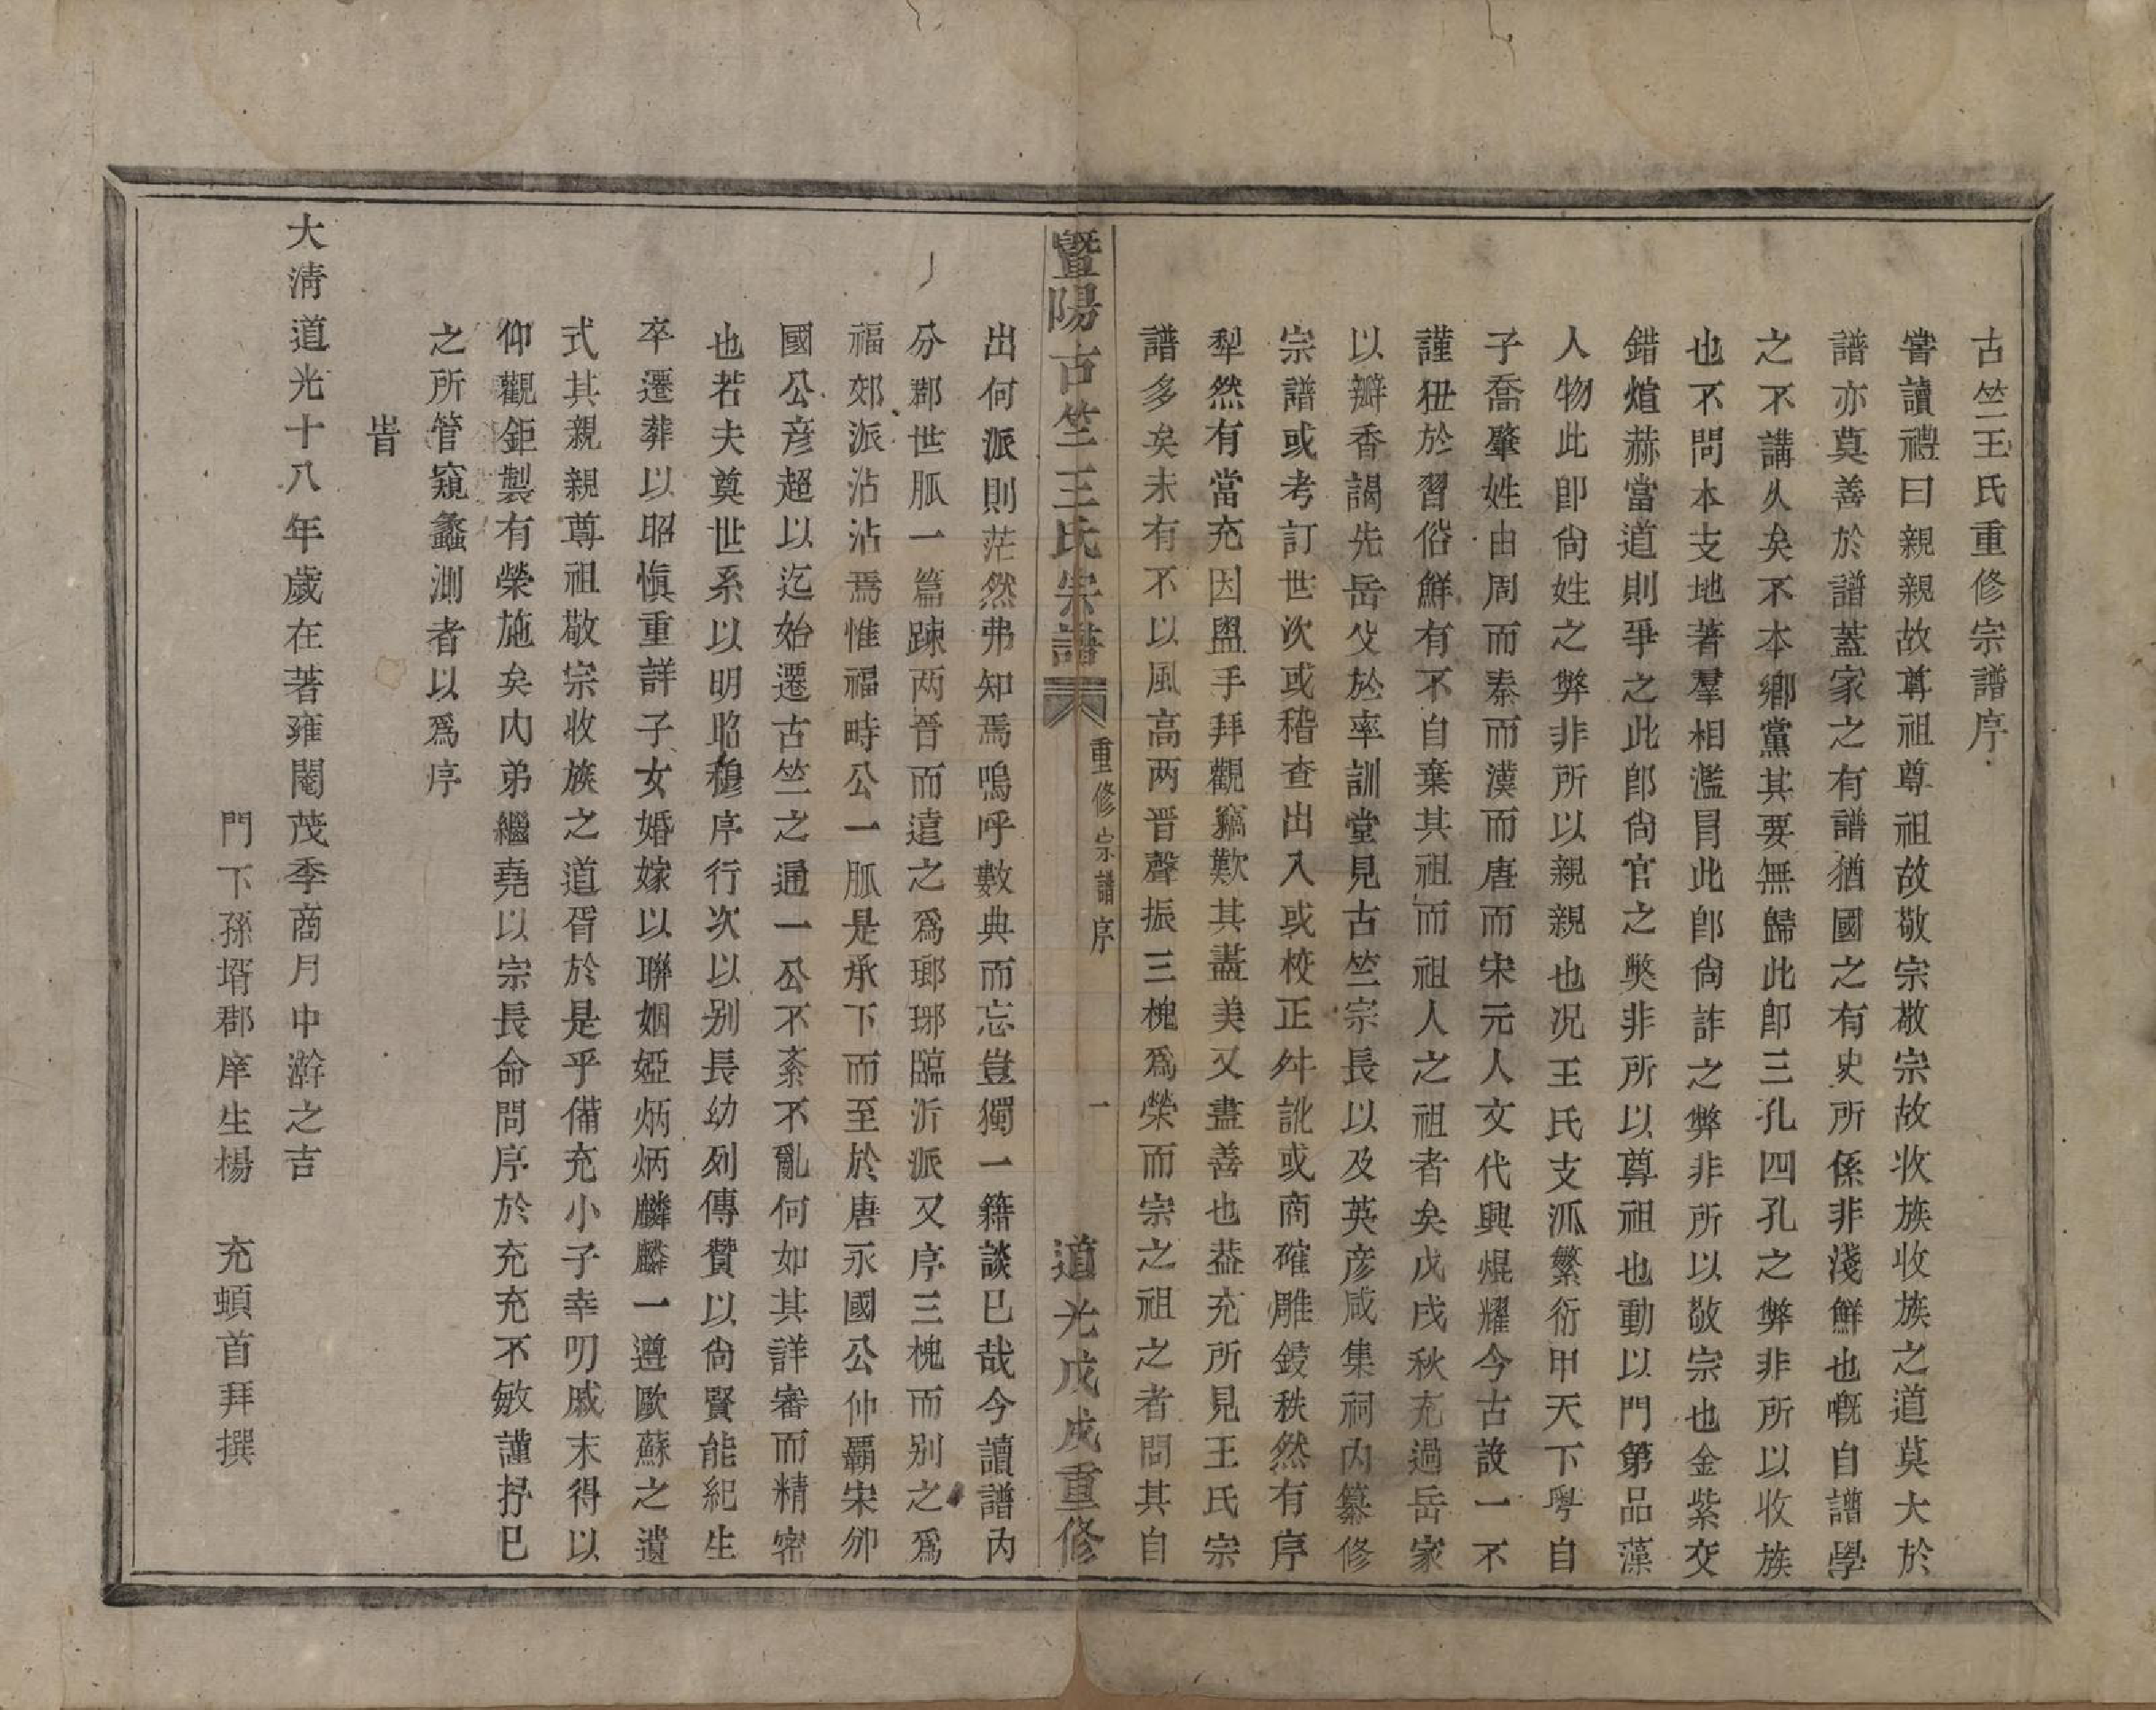 古竺王氏重修宗譜序
嘗讀禮曰親親故尊祖尊祖故敬宗敬宗故收族收族之道莫大於
譜亦莫善於譜蓋家之有譜猶國之有史所係非淺鮮也嘅自譜學
之不講久矣不本鄉黨其要無歸此卽三孔四孔之弊非所以收族
也不問本支地著羣相濫冐此卽尙詐之弊非所以敬宗也金紫交
錯煊赫當道則爭之此卽尙官之獘非所以尊祖也動以門第品藻
人物此卽尙姓之弊非所以親親也况王氏支派繁衍甲天下粤自
子喬肇姓由周而秦而漢而唐而宋元人文代興焜耀今古設一不
謹狃於習俗鮮有不自棄其祖而祖人之祖者矣戊戌秋充過岳家
以瓣香謁先岳父於率訓堂見古竺宗長以及英彦咸集祠内纂修
宗譜或考訂世次或稽查出入或校正舛訛或商確雕鋟秩然有序
犁然有當充因盥手拜觀竊歎其盡美又盡善也葢充所見王氏宗
譜多矣未有不以風高两晋聲振三槐爲榮而宗之祖之者問其自
暨陽古竺王氏宗譜 重修宗譜序 一 道光戊戌重修
出何派則茫然弗知焉嗚呼數典而忘豈獨一籍談已哉今讀譜内
分郡世脈一篇踈两晉而遠之爲瑯琊臨沂派又序三槐而别之爲
福郊派沾沾焉惟福畤公一脈是承下而至於唐永國公仲覇宋邠
國公彦超以迄始遷古竺之通一公不紊不亂何如其詳審而精密
也若夫奠世系以明昭穆序行次以别長幼列傳贊以尙賢能紀生
卒遷葬以昭愼重詳子女婚嫁以聯姻婭炳炳麟麟一遵歐蘇之遺
式其親親尊祖敬宗收族之道胥於是乎備充小子幸叨戚末得以
仰觀鉅製有榮施矣内弟繼堯以宗長命問序於充充不敏謹抒已
之所管窺蠡測者以爲序
旹
大淸道光十八年歲在著雍閹茂季商月中澣之吉
門下孫壻郡庠生楊　充頓首拜撰